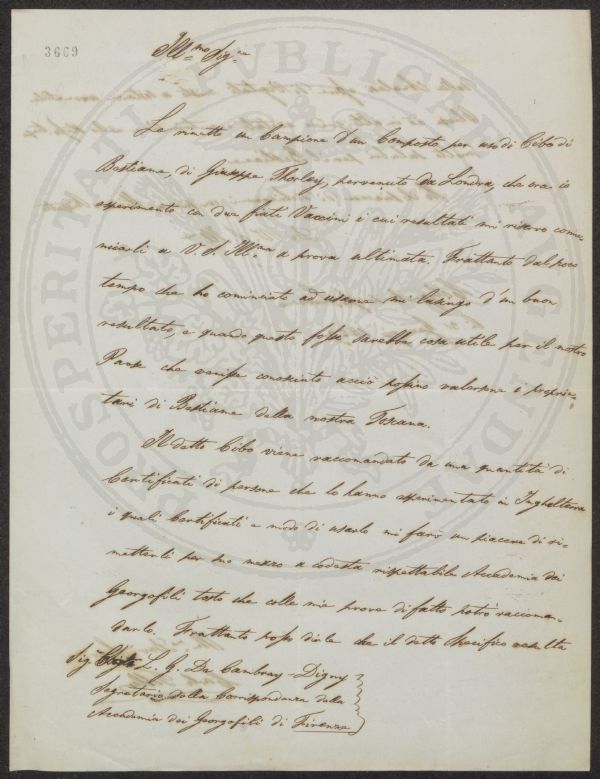 3669
Ill.mo Sig.re
Le rimetto un Campione d'un Composto per uso di Cibo di
Bestiame, di Giuseppe Thorley, pervenuto da Londra, che ora io
esperimento con due frutti Vaccini i cui resultati mi riservo comu=
nicarli a V. S. Ill.ma a prova ultimata. Frattanto dal poco
tempo che ho cominciato ad usarne mi lusingo d'un buon
resultato, e quando questo fosse sarebbe cosa utile per il nostro
Paese che venisse conosciuto acciò possino valersene i proprie=
tarj di Bestiame della nostra Toscana.
Il detto Cibo viene raccomandato da una quantità di
Certificati di persone che lo hanno esperimentato in Inghilterra
i quali Certificati e modo di usarlo mi farò un piacere di ri=
metterli per suo mezzo a codesta rispettabile Accademia dei
Georgofili tosto che colle mie prove di fatto potrò raccoman=
darlo. Frattanto posso dirle che il detto Specifico resulta
Sig. L. G. De Cambray-Digny
Segretario della Corrispondenza della
Accademia dei Georgofili di Firenze
PROSPERITATI PUBLICAE AUGENDAE